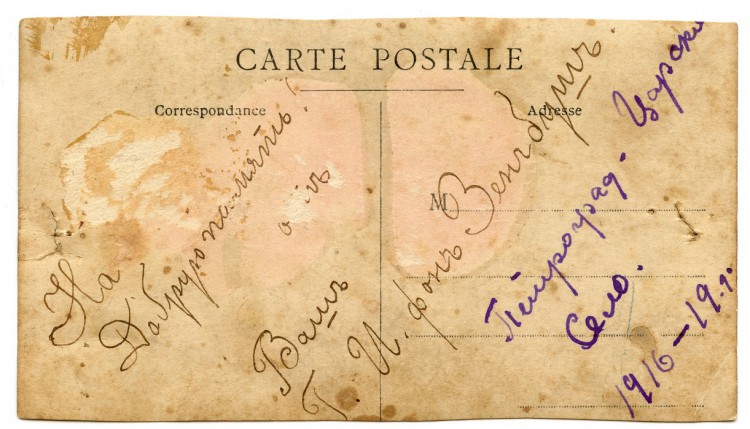 CARTE POSTALE
Correspondance
Adresse
M
На
Добрую память!
о
Вашъ
Г. И. фонъ
Петроград - Царское
Село.
1916-19 г.